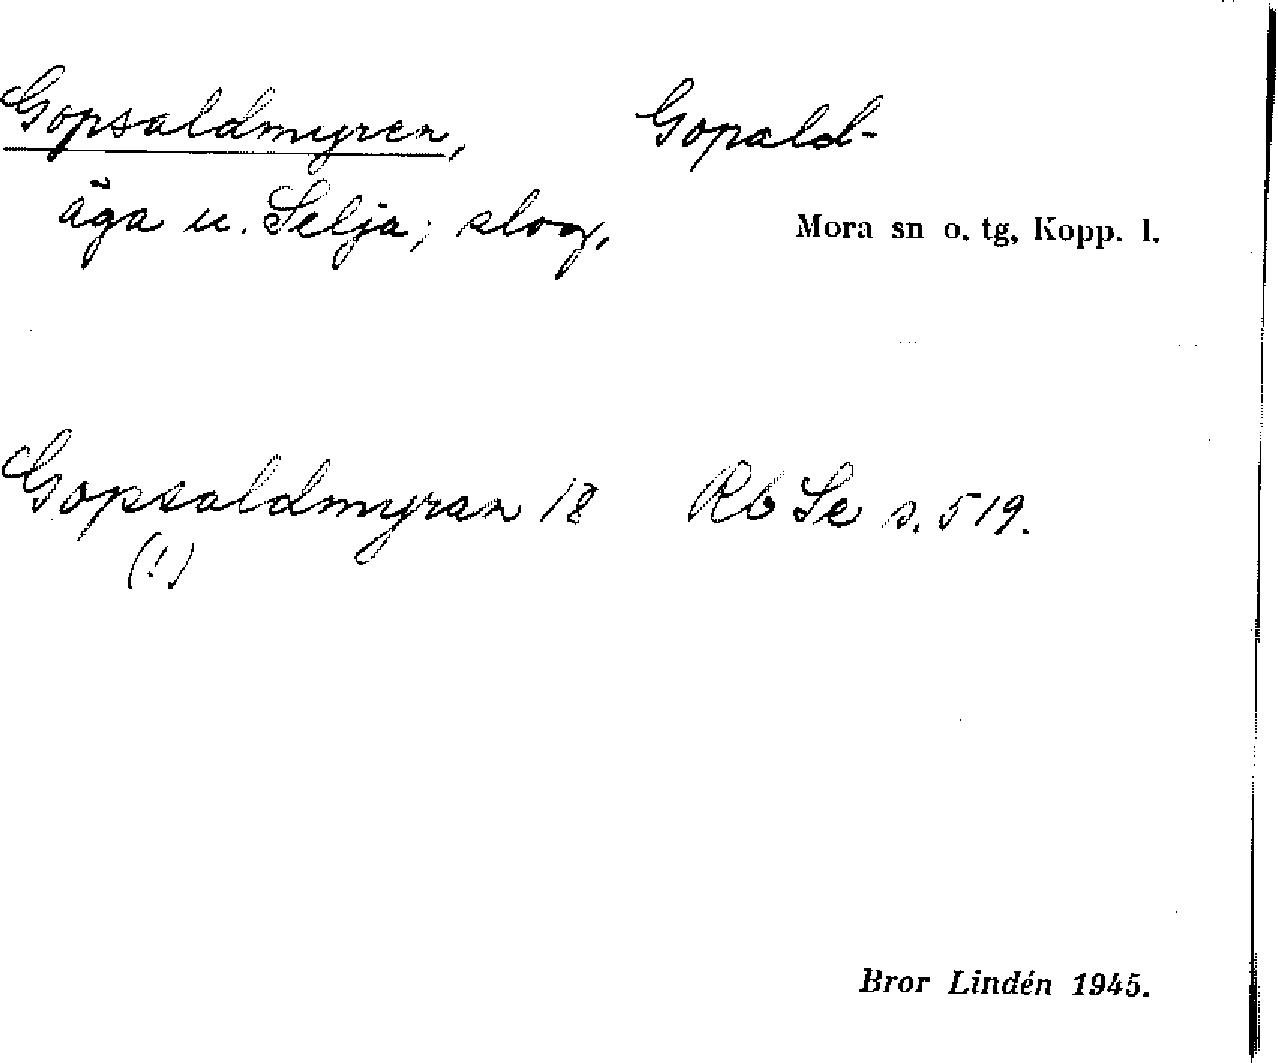 Gopsaldmyren, Gopald-
äga u. Selja; slog,
Mora sn o. tg, Kopp. l.
Gopsaldmyran 18 Rb Se s. 519.
(!)
Bror Lindén 1945.